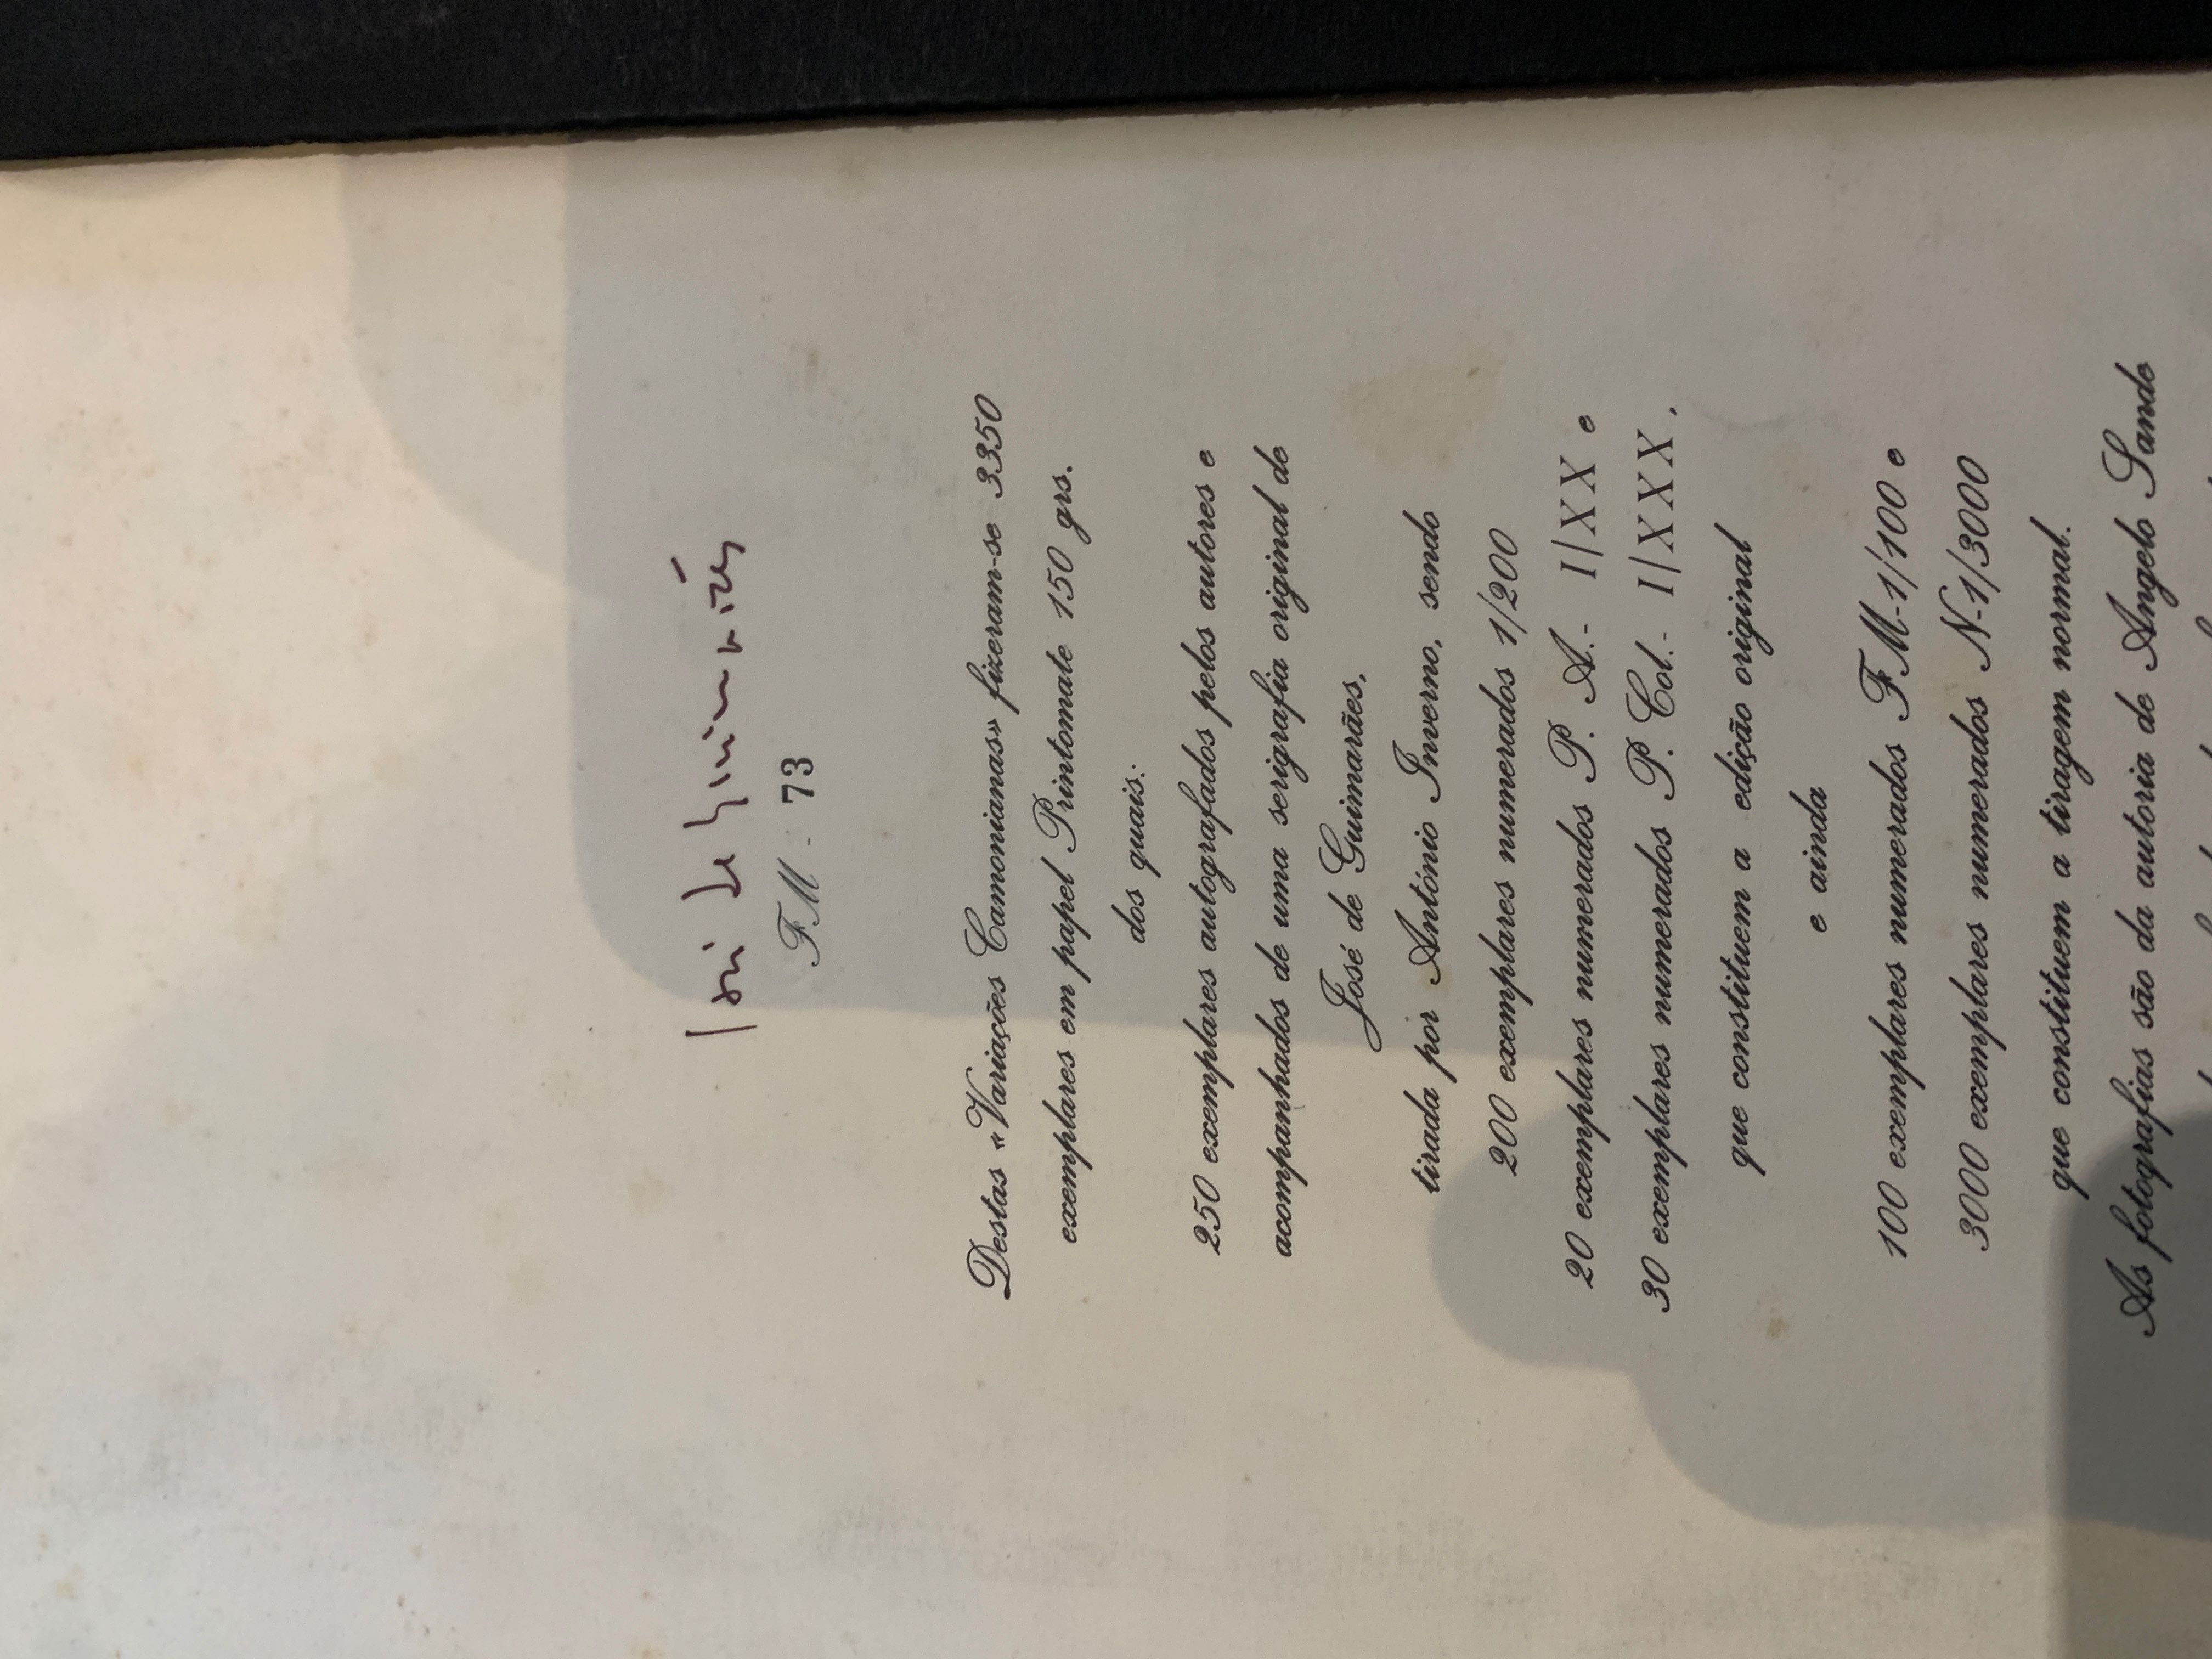 José de Guimarães
FM - 73
Destas «Variações Camonianas» fizeram-se 3350
exemplares em papel Printomate 150 grs.
dos quais:
250 exemplares autografados pelos autores e
acompanhados de uma serigrafia original de
José de Guimarães,
tirada por António Inverno, sendo
200 exemplares numerados 1/200
20 exemplares numerados P. A.- I/XX e
30 exemplares numerados P. Col.- I/XXX,
que constituem a edição original
e ainda
100 exemplares numerados FM-1/100 e
3000 exemplares numerados N-1/3000
que constituem a tiragem normal.
As fotografias são da autoria de Angelo Sande